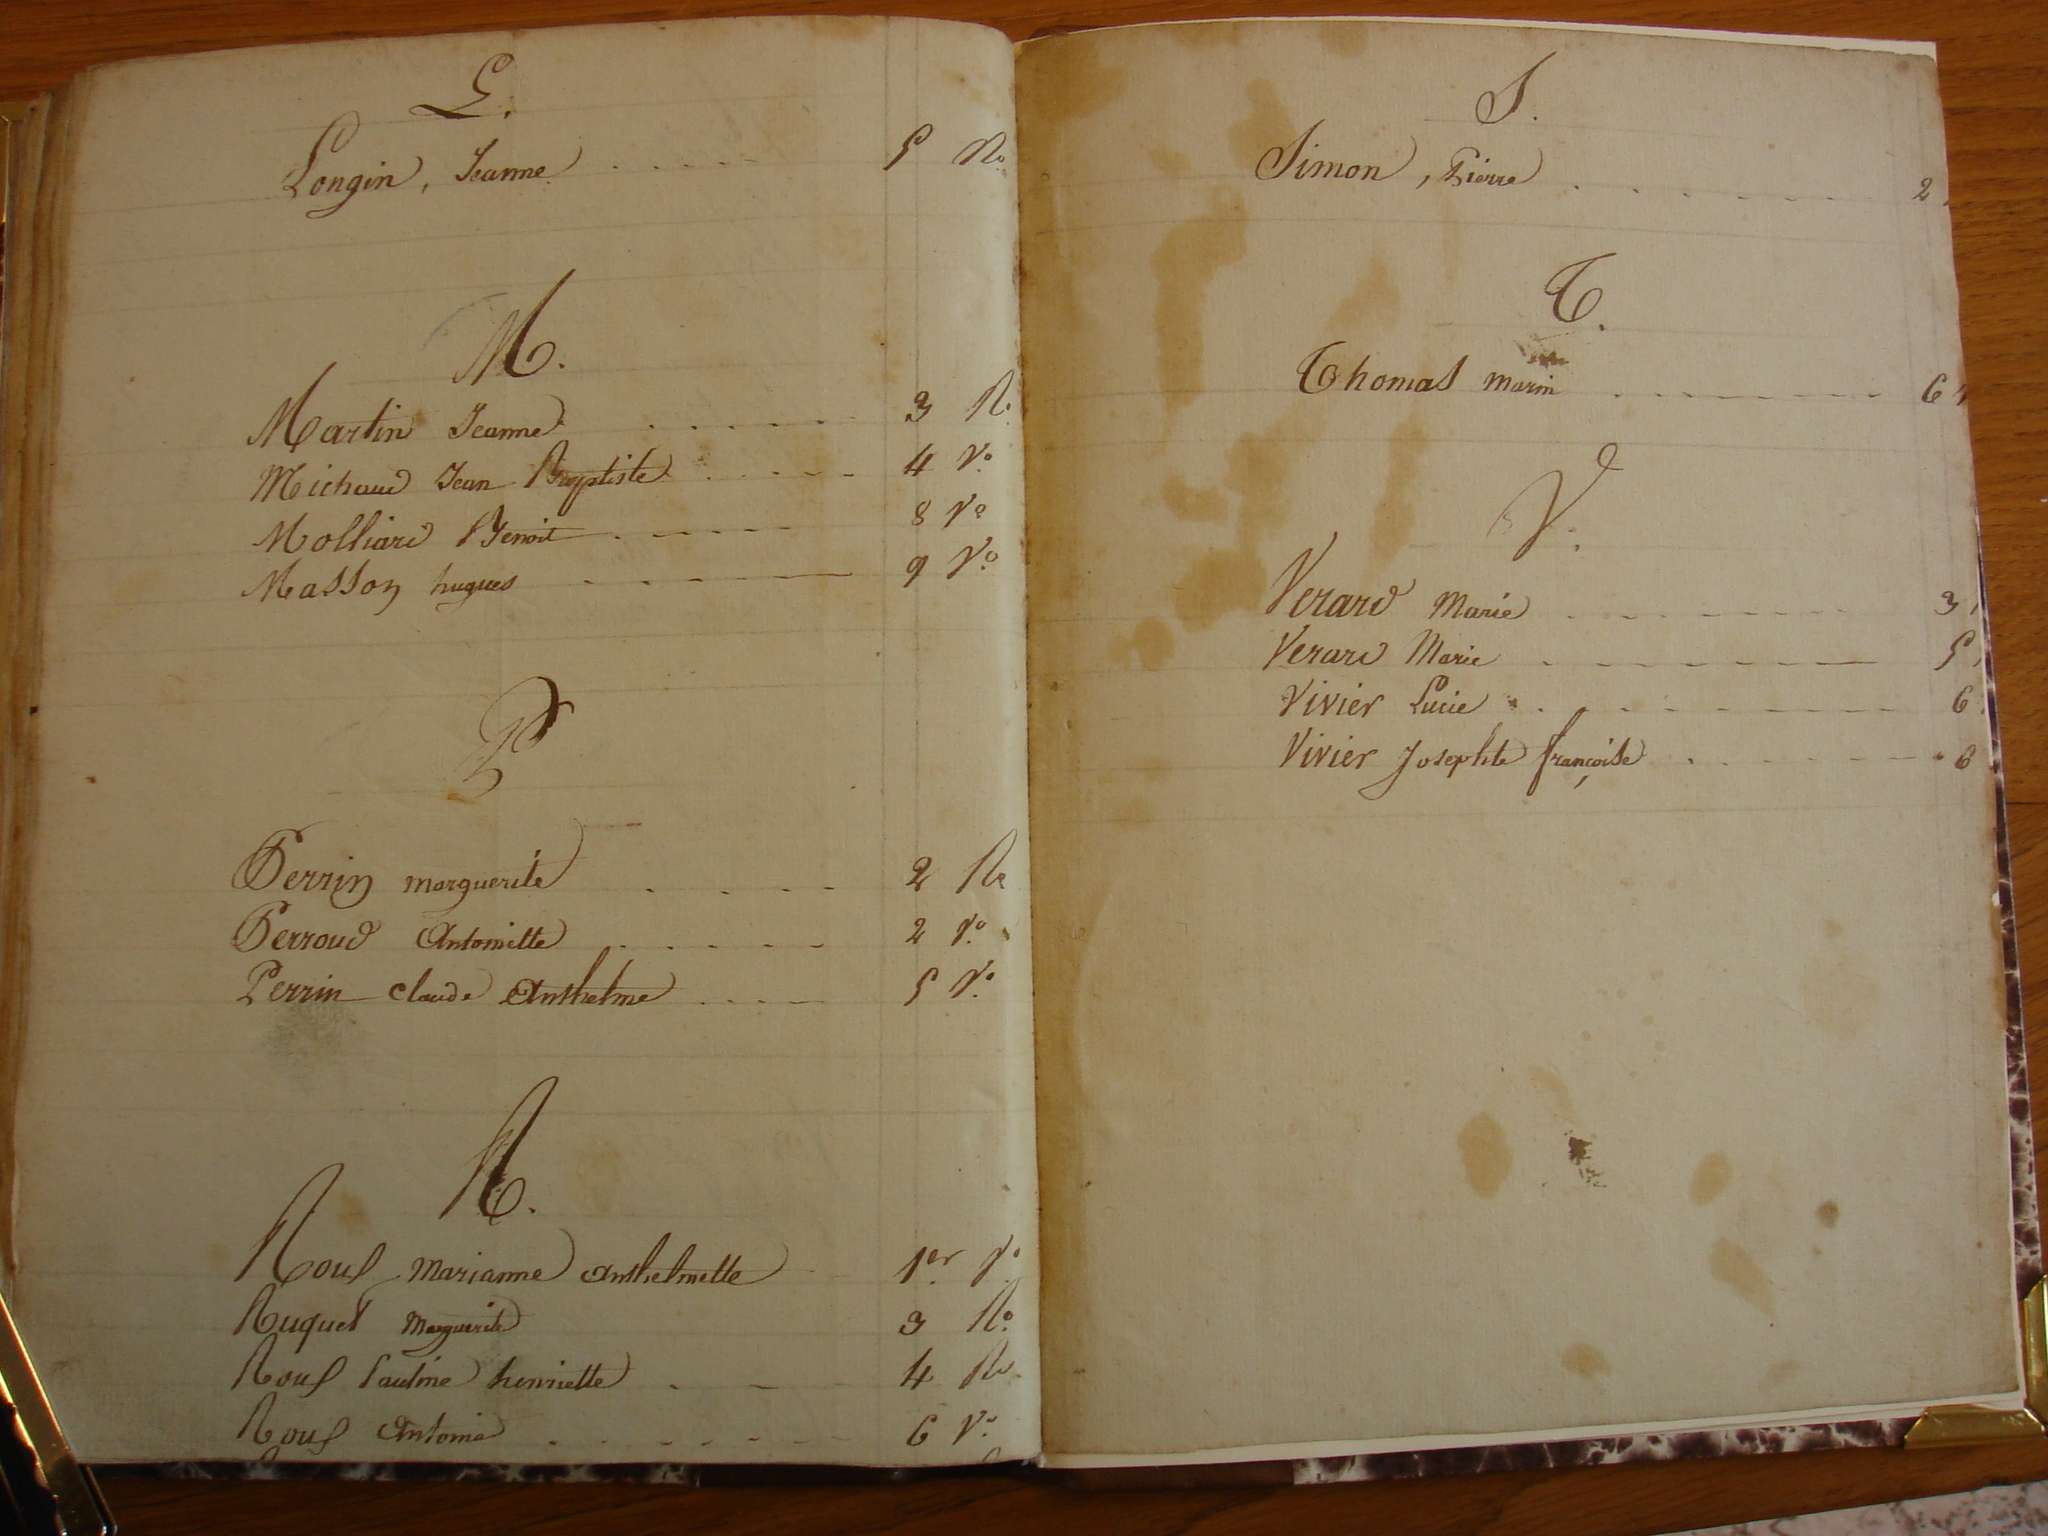 L.
Longin, Jeanne ..... 5 Ro
M.
Martin Jeanne ..... 3 Ro
Michaud Jean Baptiste .... 4 Vo
Molliard Benoit ..... 8 Vo
Masson hugues ..... 9 Vo
P
Perrin marguerite .... 2 Ro
Perroud Antoinette ..... 2 Vo
Perrin Claude Anthelme .... 5 Vo
R.
Roux Marianne Anthelmette 1er Vo
Ruquet Marguerite 3 Ro
Roux Pauline henriette ... 4 Ro
Roux Antoine ...... 6 Vo
S.
Simon, Pierre ....... 2
T.
Thomas marin ........ 6
V.
Verard Marie ........ 3
Verard Marie ........ 5
Vivier Lucie ......... 6
Vivier Josephte françoise ...... 6